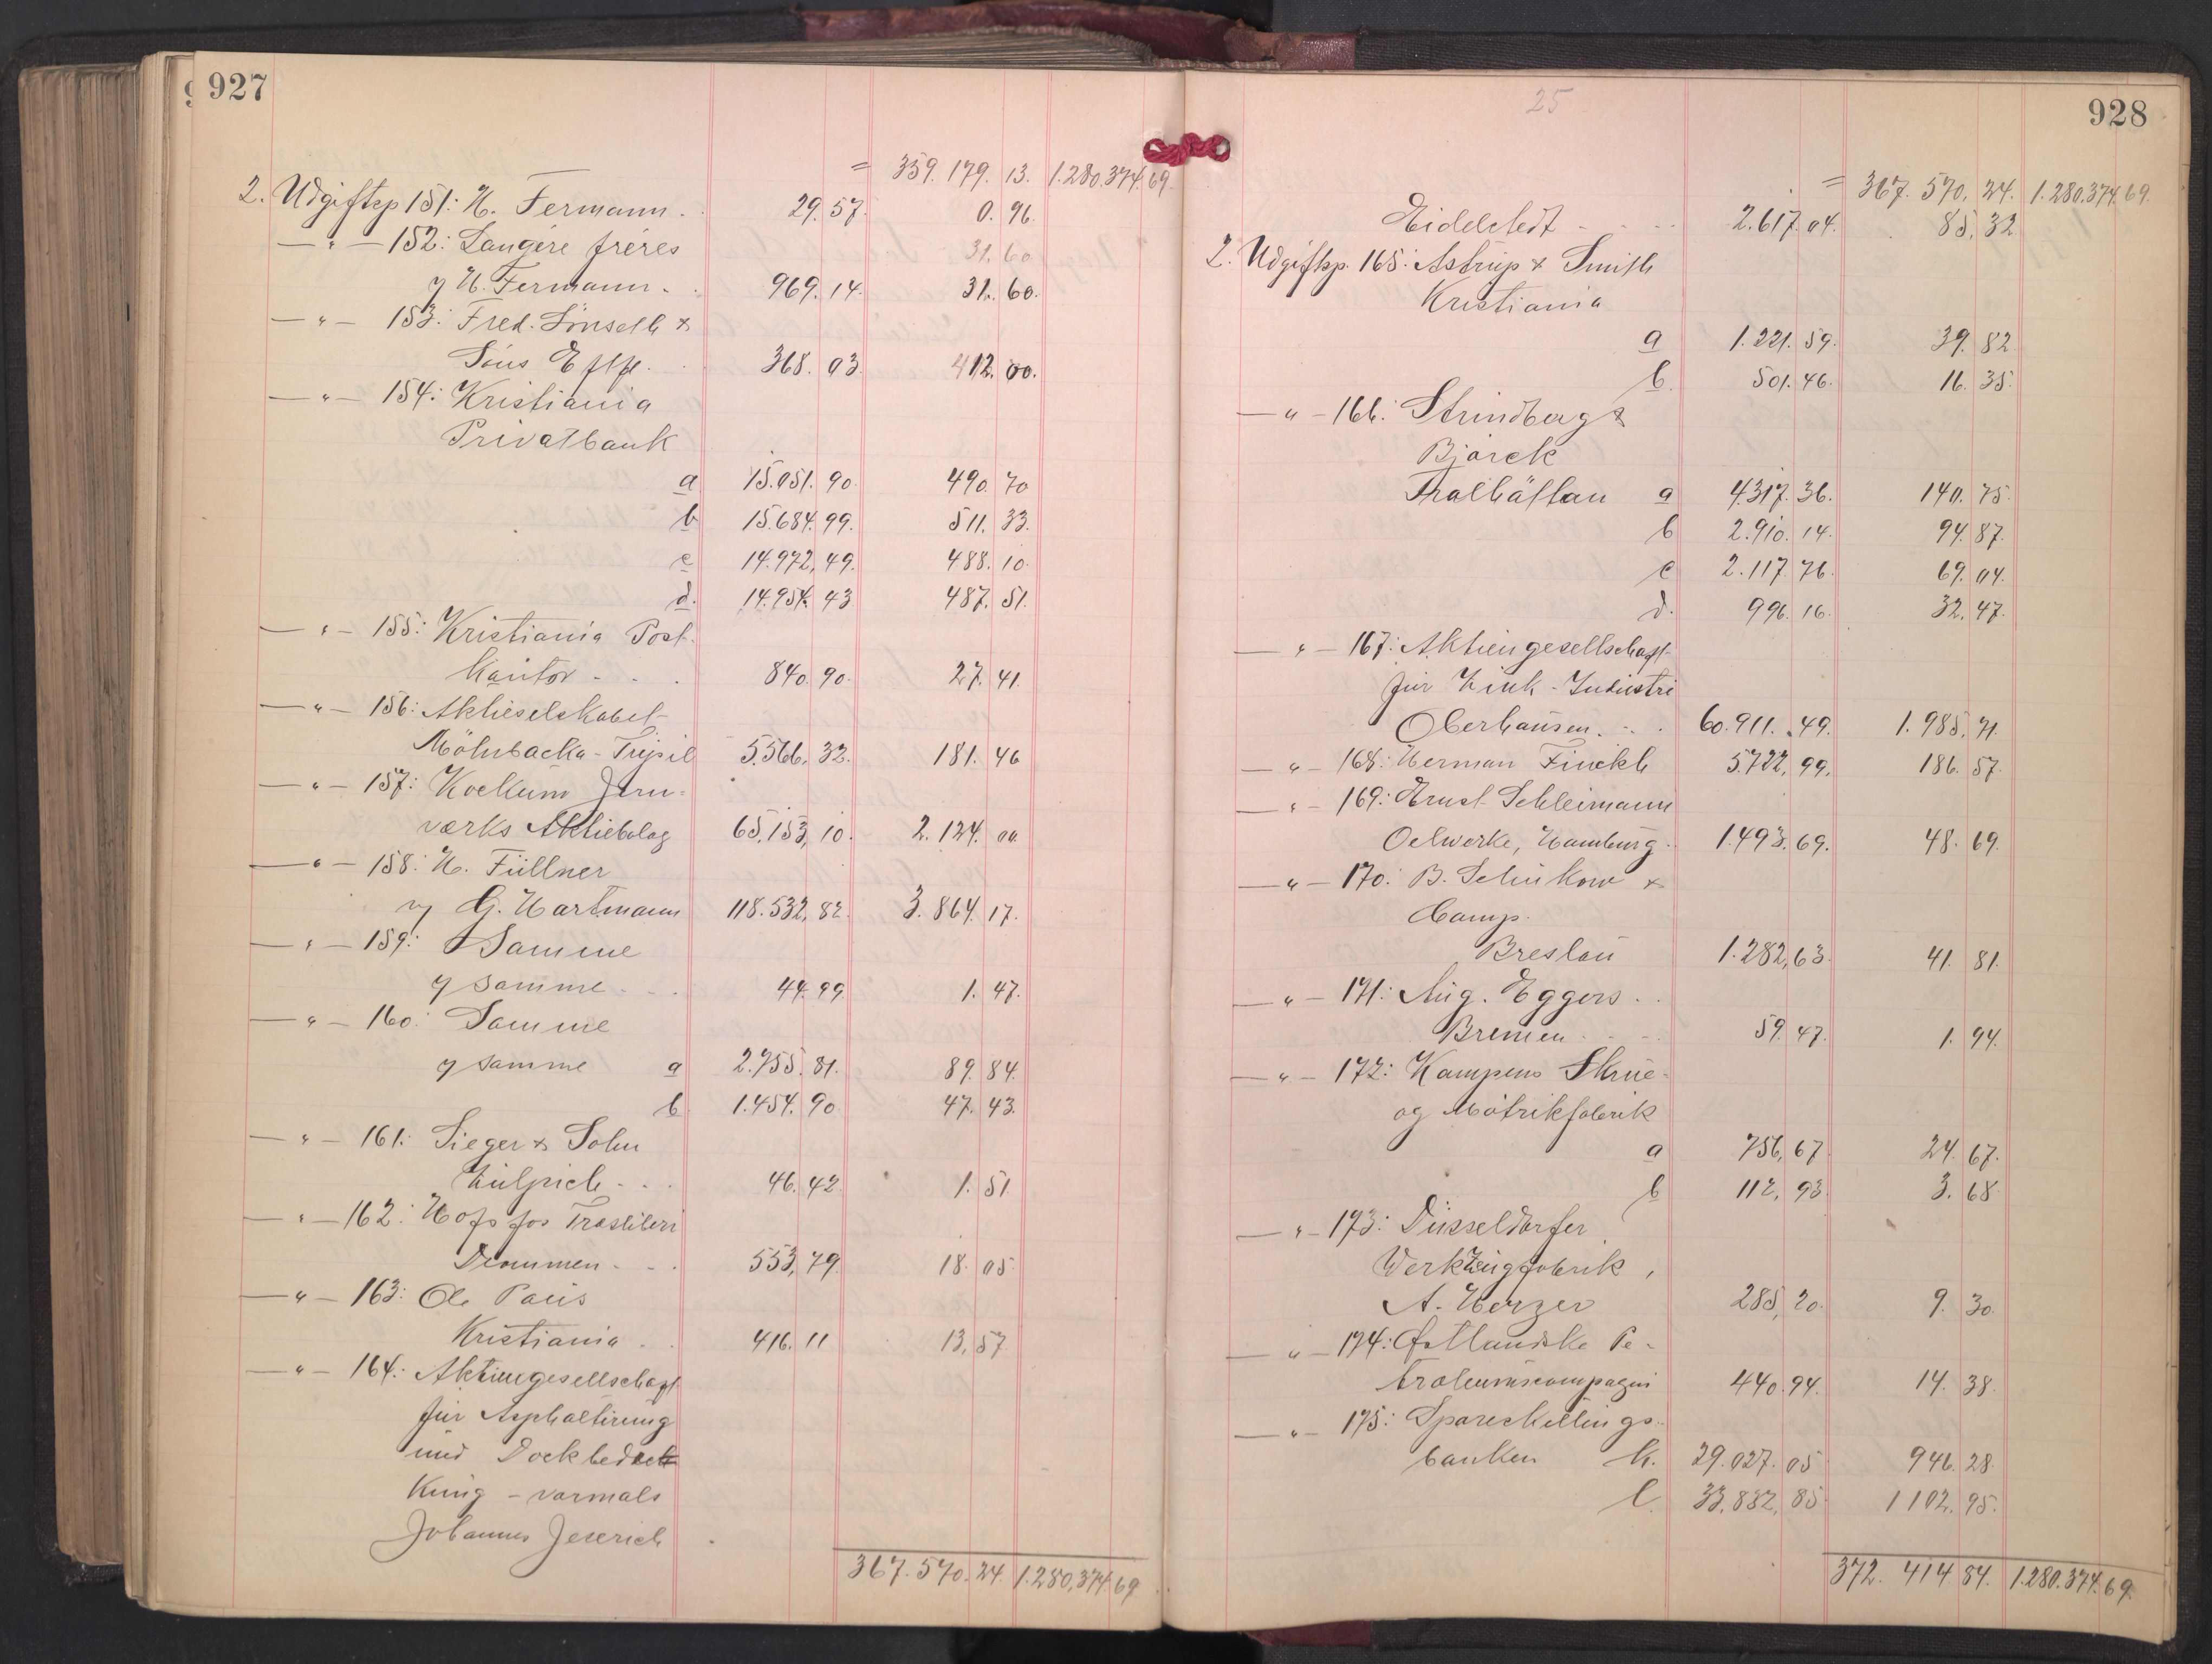 927
= 359.179.13. 1.280.374.69.
2. Udgiftsp 151: H. Fermann . 29.57. 0.96.
— " — 152: Laugère frères 31.60
y H. Fermann . 969.14. 31.60.
— " — 153: Fred. Lönseth &
Söns Eftf. . 368.03. 412.00.
— " — 154: Kristiania
Privatbank
a 15.051.90. 490.70
b 15.684.99. 511.33.
c 14.972,49. 488.10.
d. 14.954.43 487.51.
— " — 155: Kristiania Post-
Kontor - . . 840.90. 27.41.
— " — 156: Aktieselskabet
Möhrbacka - Trysil 5.566,32. 181.46
— " — 157: Kockums Jern-
værks Aktiebolag 65.153,10. 2.124.00.
— " — 158: H. Füllner
v/ G. Hartmann 118.532,82. 3.864.17.
— " — 159: Samme
y samme - . . 44.99 1.47.
— " — 160: Samme
y samme a 2.755.81. 89.84.
b. 1.454.90 47.43.
— " — 161: Sieger & Sohn
Zülpich - . . 46.42. 1.51.
— " — 162: Hofsfos Træsliberi
Drammen - . . 553,79. 18.05.
— " — 163: Ole Paus
Kristiania . . 416.11 13,57.
— " — 164: Aktiengesellschaft
für Asphaltirung
und Dockbedeck
Kung - vormals
Johannes Jeserich .
367.570.24. 1.280,374.69
25
928
= 367.570.24. 1.280.374.69.
Eidelstedt - . . . 2.617.04. 85,32
2. Udgiftsp. 165: Astrup & Smith
Kristiania
a 1.221.59. 39.82.
b. 501.46. 16.35.
— " — 166: Strindberg &
Björck
Trolhättan a 4.317.36. 140.75.
b 2.910.14. 94.87.
c 2.117.76. 69.04.
d. 996.16. 32,47.
— " — 167: Aktiengesellschaft
für Zink - Industri
Oberhausen. - . . 60.911.49. 1.985,71.
— " — 168: Herman Finckh 5.722,99. 186.57.
— " — 169: Ernst Schleimann
Oelwerke, Hamburg. 1.493.69. 48.69.
— " — 170: B. Schükow &
Comp.
Breslau 1.282,63. 41.81.
— " — 171: Aug. Eggers . .
Bremen . . . 59.47. 1.94.
— " — 172: Kampens Skrue-
og Møtrikfabrik
a 756,67 24.67.
b 112,93 3.68
— " — 173: Düsseldorfer
Werkzeugfabrik,
A. Herzer 285,20. 9.30.
— " — 174: Østlandske Pe-
troleumscompagni 440.94. 14.38.
— " — 175: Spareskillings-
banken k. 29.027.05 946.28.
l. 33,832,85. 1102.95.
372.414 84. 1.280.374.69.